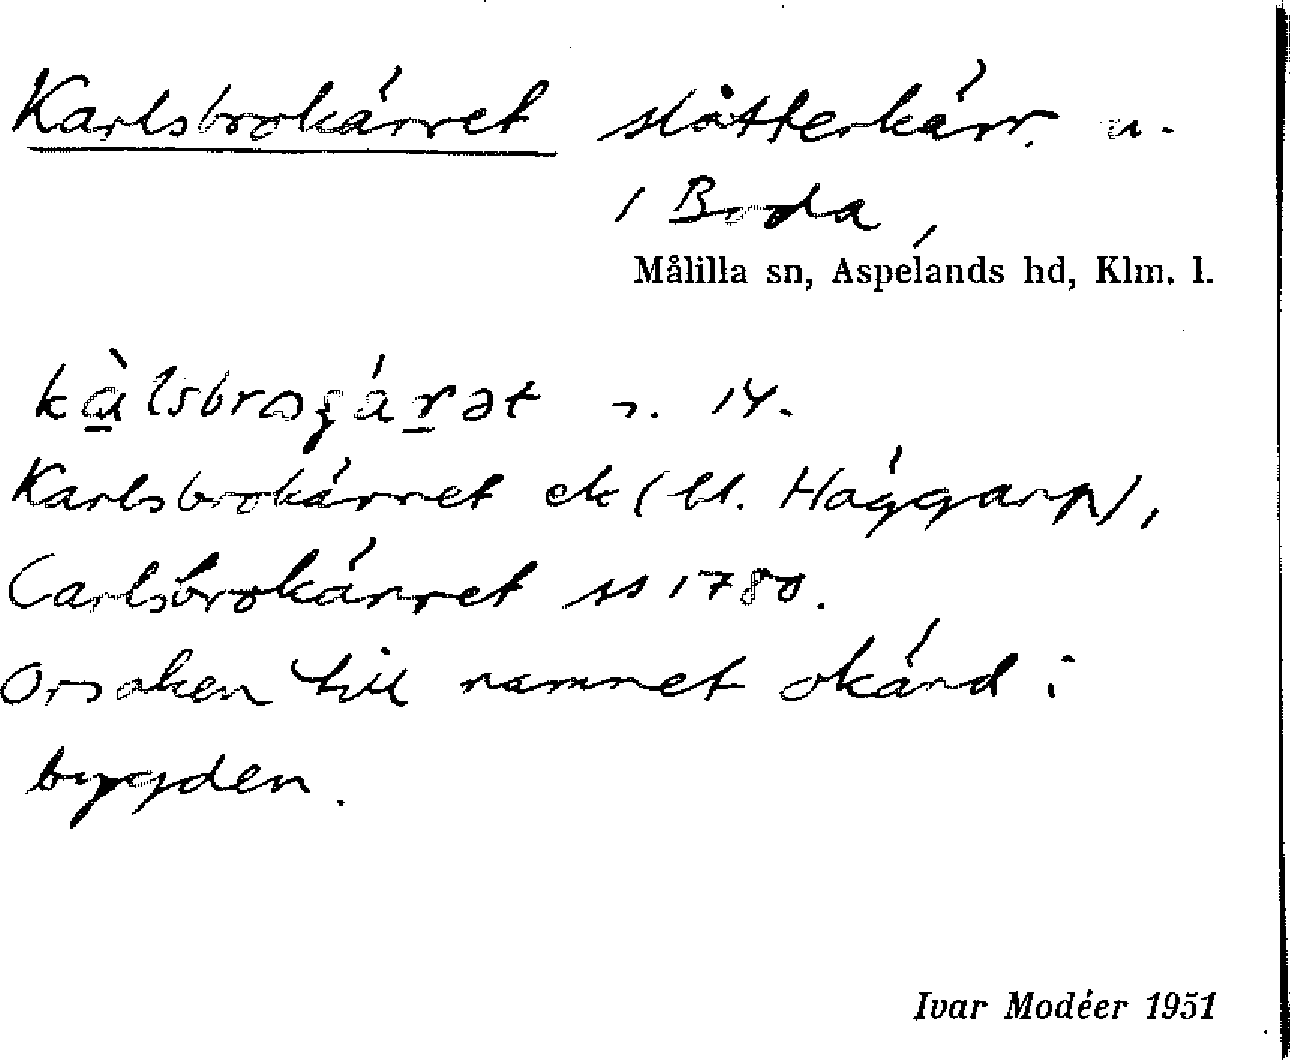 Karlsbrokärret slåtterkärr. u.
1 Boda,
Målilla sn, Aspelands hd, Klm. l.
kàlsbrogáṟət n. 14.
Karlsbrokärret ek (bl. Häggarp),
Carlsbrokärret ss 1780.
Orsaken till namnet okänd i
bygden.
Ivar Modéer 1951